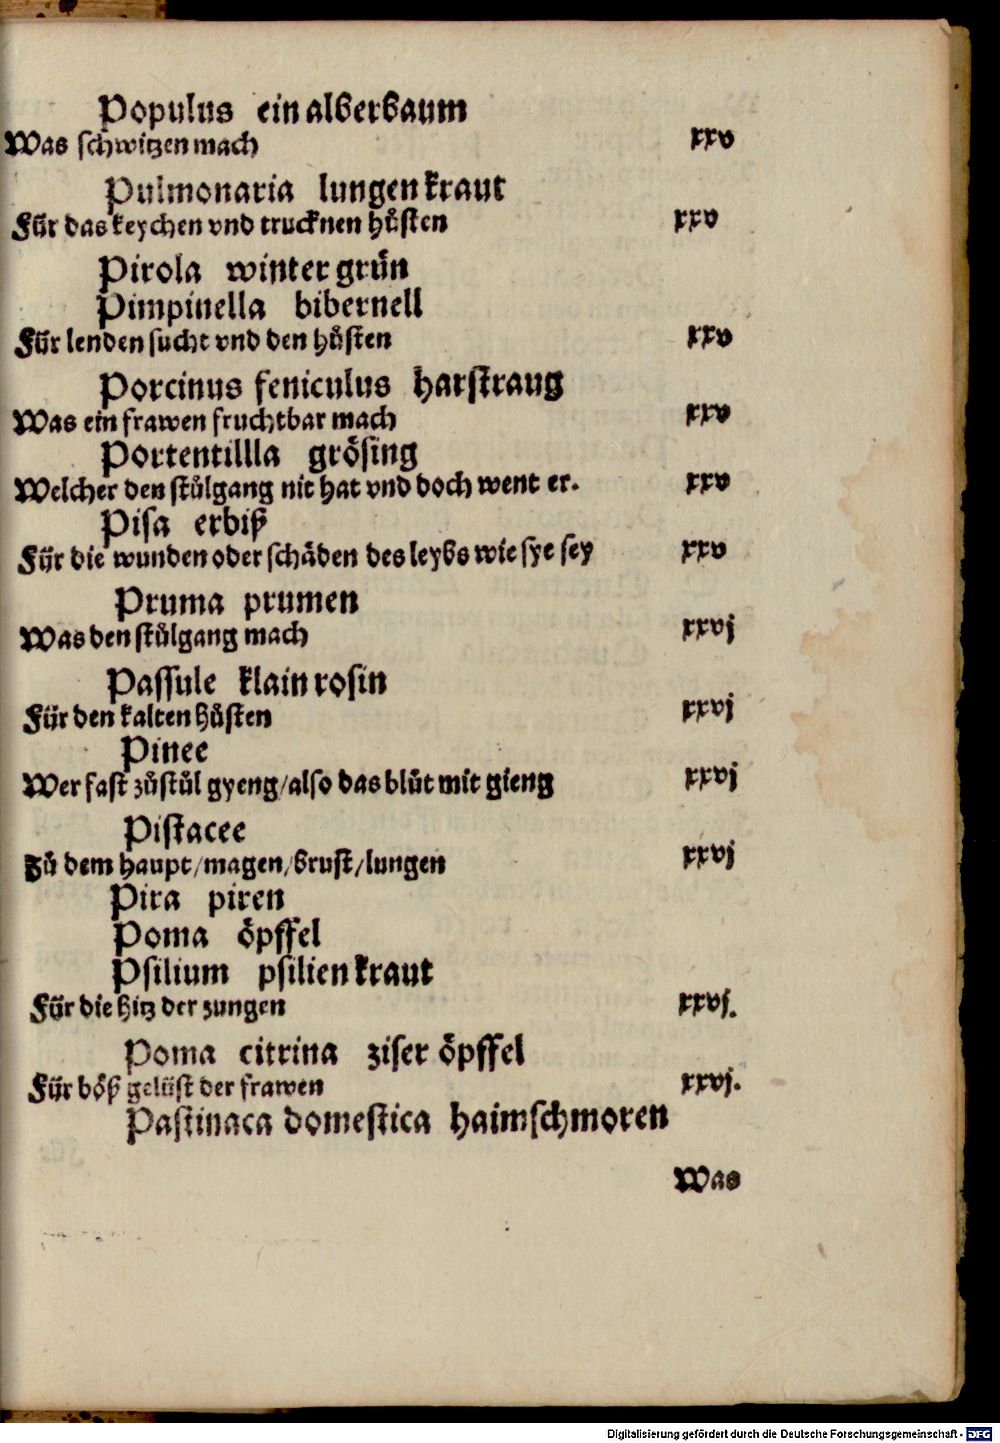 Populus ein alberbaum
Was schwitzen mach xxv
Pulmonaria lungen kraut
Für das keychen vnd trucknen hůsten xxv
Pirola winter grün
Pimpinella bibernell
Für lenden sucht vnd den hůsten xxv
Porcinus feniculus harstrang
Was ein frawen fruchtbar mach xxv
Portentillla grösing
Welcher den stůlgang nit hat vnd doch went er. xxv
Pisa erbiß
Für die wunden oder schäden des leybs wie sye sey xxv
Pruma prumen
Was den stůlgang mach xxvj
Passule klain rosin
Für den kalten hůsten xxvj
Pinee
Wer fast zůstůl gyeng/also das blůt mit gieng xxvj
Pistacee
Zů dem haupt/magen/brust/lungen xxvj
Pira piren
Poma öpffel
Psilium psilien kraut
Für die hitz der zungen xxvj.
Poma citrina ziser öpffel
Für böß gelüst der frawen xxvj.
Pastinaca domestica haimschmoren
Was
Digitalisierung gefördert durch die Deutsche Forschungsgemeinschaft - DFG